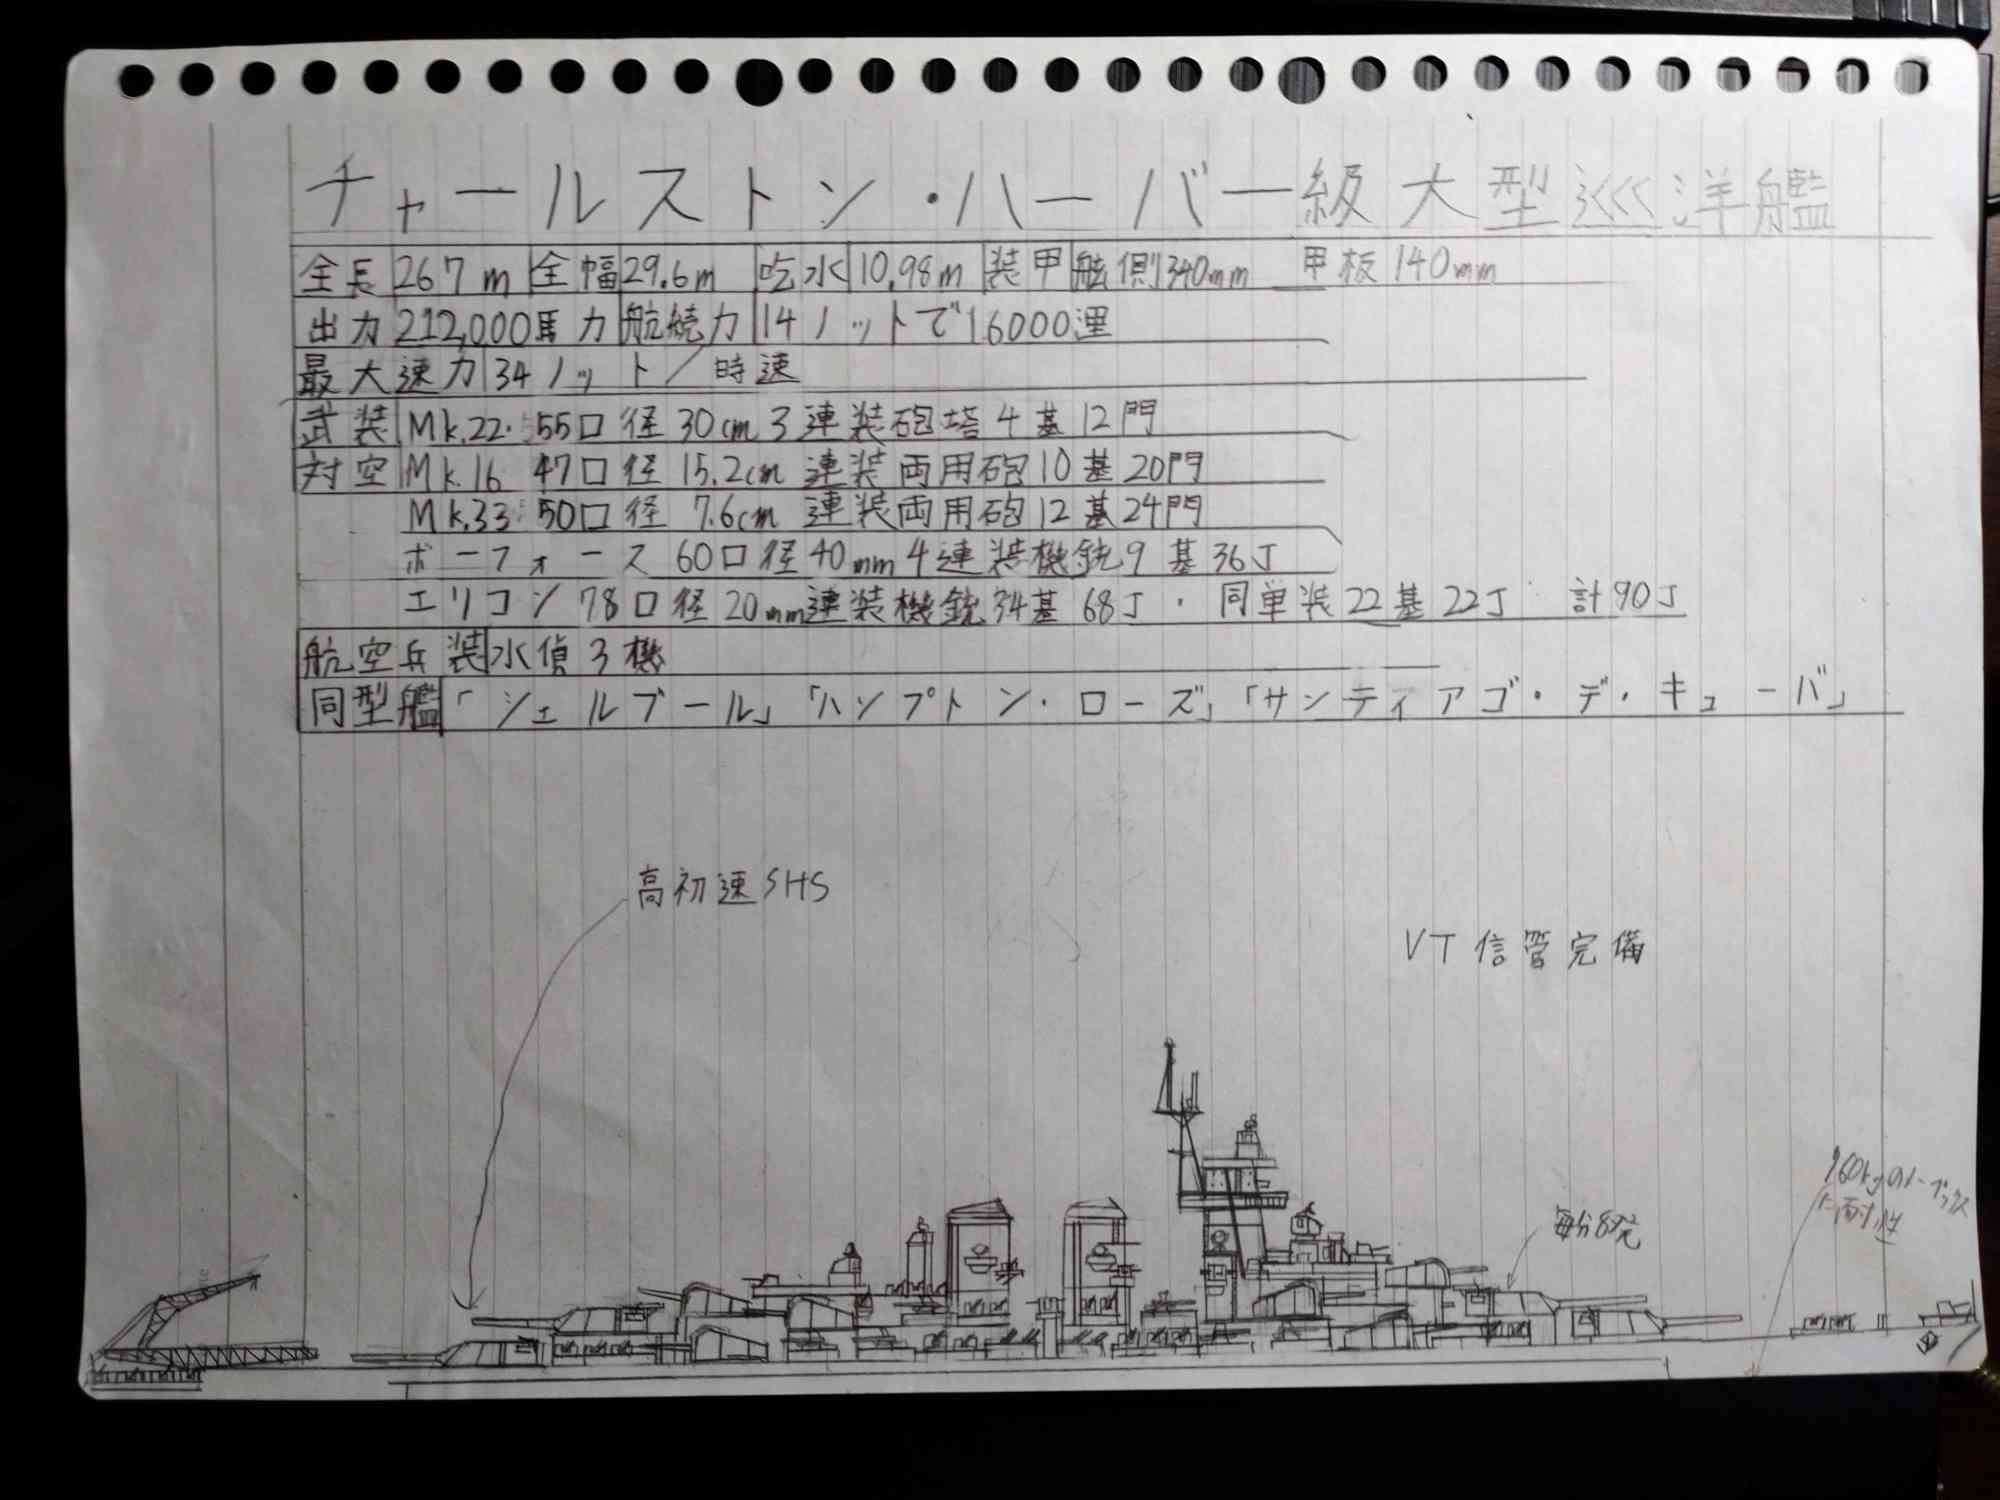 チャールストン・ハーバー級大型巡洋艦
全長 267m 全幅 29.6m 吃水 10.98m 装甲 舷側340mm 甲板140mm
出力 212,000馬力 航続力 14ノットで16000浬
最大速力 34ノット/時速
武装 Mk.22. 55口径30cm3連装砲塔4基12門
対空 Mk.16 47口径15.2cm連装両用砲10基20門
Mk.33 50口径 7.6cm 連装両用砲12基24門
ボーフォース 60口径40mm4連装機銃9基36丁
エリコン 78口径20mm連装機銃34基68丁・同単装22基22丁 計90丁
航空兵装 水偵3機
同型艦 「シェルブール」「ハンプトン・ローズ」「サンティアゴ・デ・キューバ」
高初速SHS
VT信管完備
毎分8発
に耐性